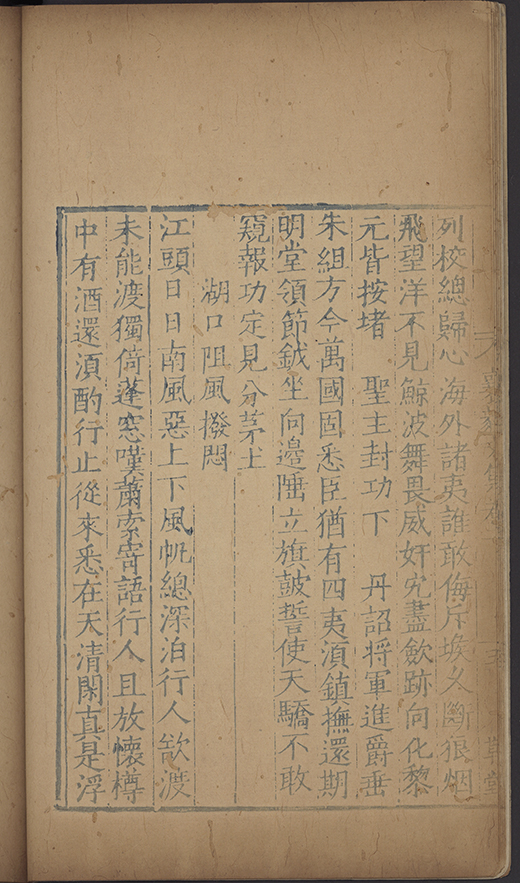 列校總歸心海外諸夷誰敢侮斥堠久斷狼烟
飛望洋不見鯨波舞畏威奸宄盡歛跡向化黎
元皆按堵 聖主封功下 丹詔將軍進爵垂
朱組方今萬國固悉臣猶有四夷湏鎮撫還期
明堂領節鉞坐向邉陲立旗皷誓使天驕不敢
窺報功定見分茅土
湖口阻風撥悶
江頭日日南風惡上下風帆總深泊行人欲渡
未能渡獨倚蓬窓嘆蕭索寄語行人且放懷樽
中有酒還湏酌行止從來悉在天清閑真是浮